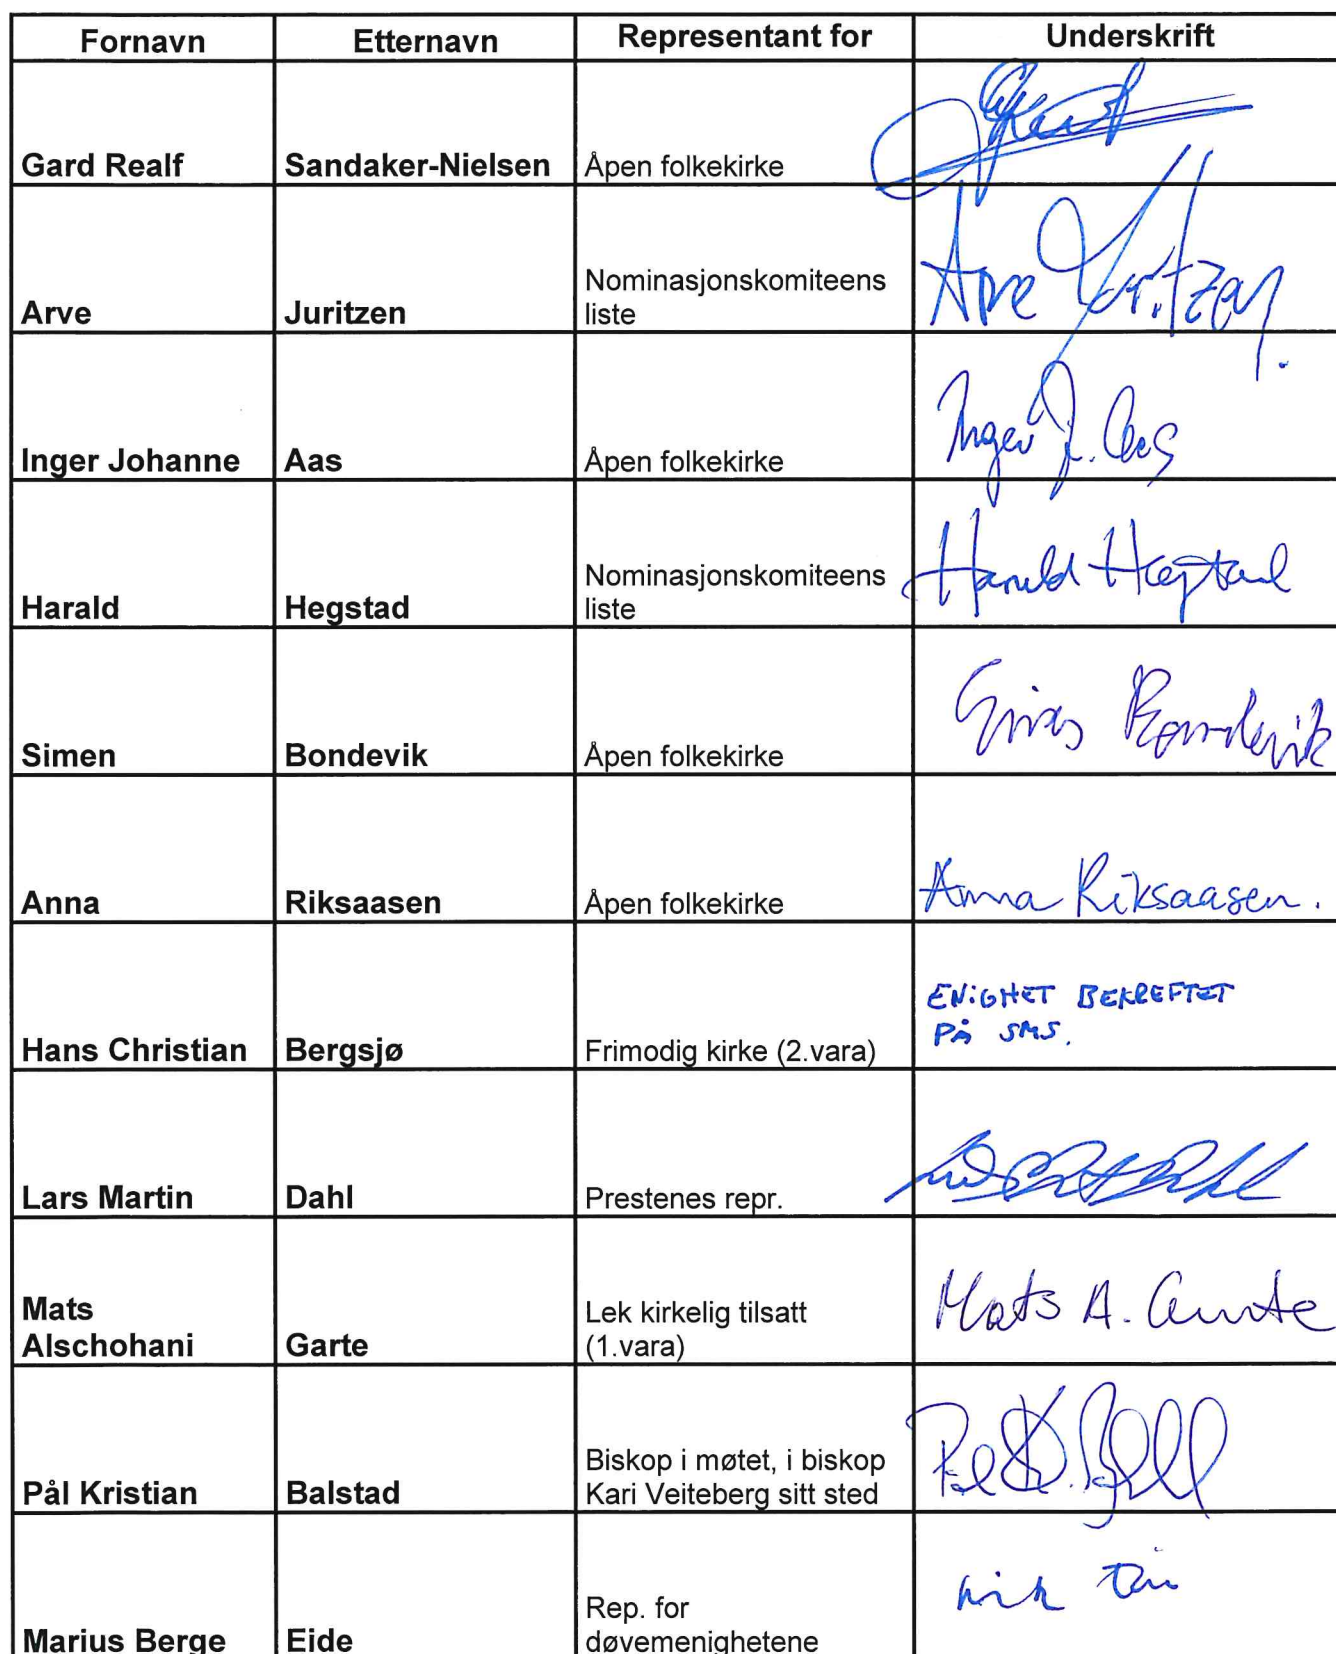 Fornavn Etternavn Representant for Underskrift
Gard Realf Sandaker-Nielsen Åpen folkekirke
Arve Juritzen Nominasjonskomiteens
liste Arve Juritzen.
Inger Johanne Aas Åpen folkekirke Inger J. Aas
Harald Hegstad Nominasjonskomiteens
liste Harald Hegstad
Simen Bondevik Åpen folkekirke Simen Bondevik
Anna Riksaasen Åpen folkekirke Anna Riksaasen.
Hans Christian Bergsjø Frimodig kirke (2.vara) ENIGHET BEKREFTET
PÅ SMS.
Lars Martin Dahl Prestenes repr.
Mats
Alschohani Garte Lek kirkelig tilsatt
(1.vara) Mats A. Garte
Pål Kristian Balstad Biskop i møtet, i biskop
Kari Veiteberg sitt sted
Marius Berge Eide Rep. for
døvemenighetene